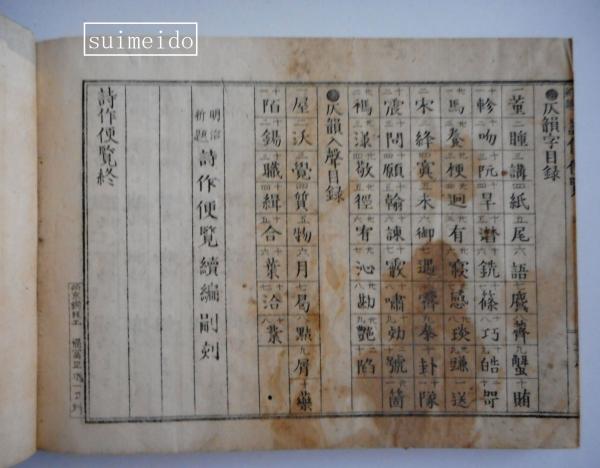 suimeido
仄韻字目録
董腫講紙尾語麌薺蟹賄
軫吻阮旱潸銑篠巧皓哿
馬養梗迥有寑感琰豏送
宋絳寘未御遇霽泰卦隊
震問願翰諫霰嘯効號箇
禡漾敬徑宥沁勘艶陷
仄韻入聲目録
屋沃覺質物月曷黠屑藥
陌錫職緝合葉洽葉
明治新題詩作便覧續編嗣刻
詩作便覧終